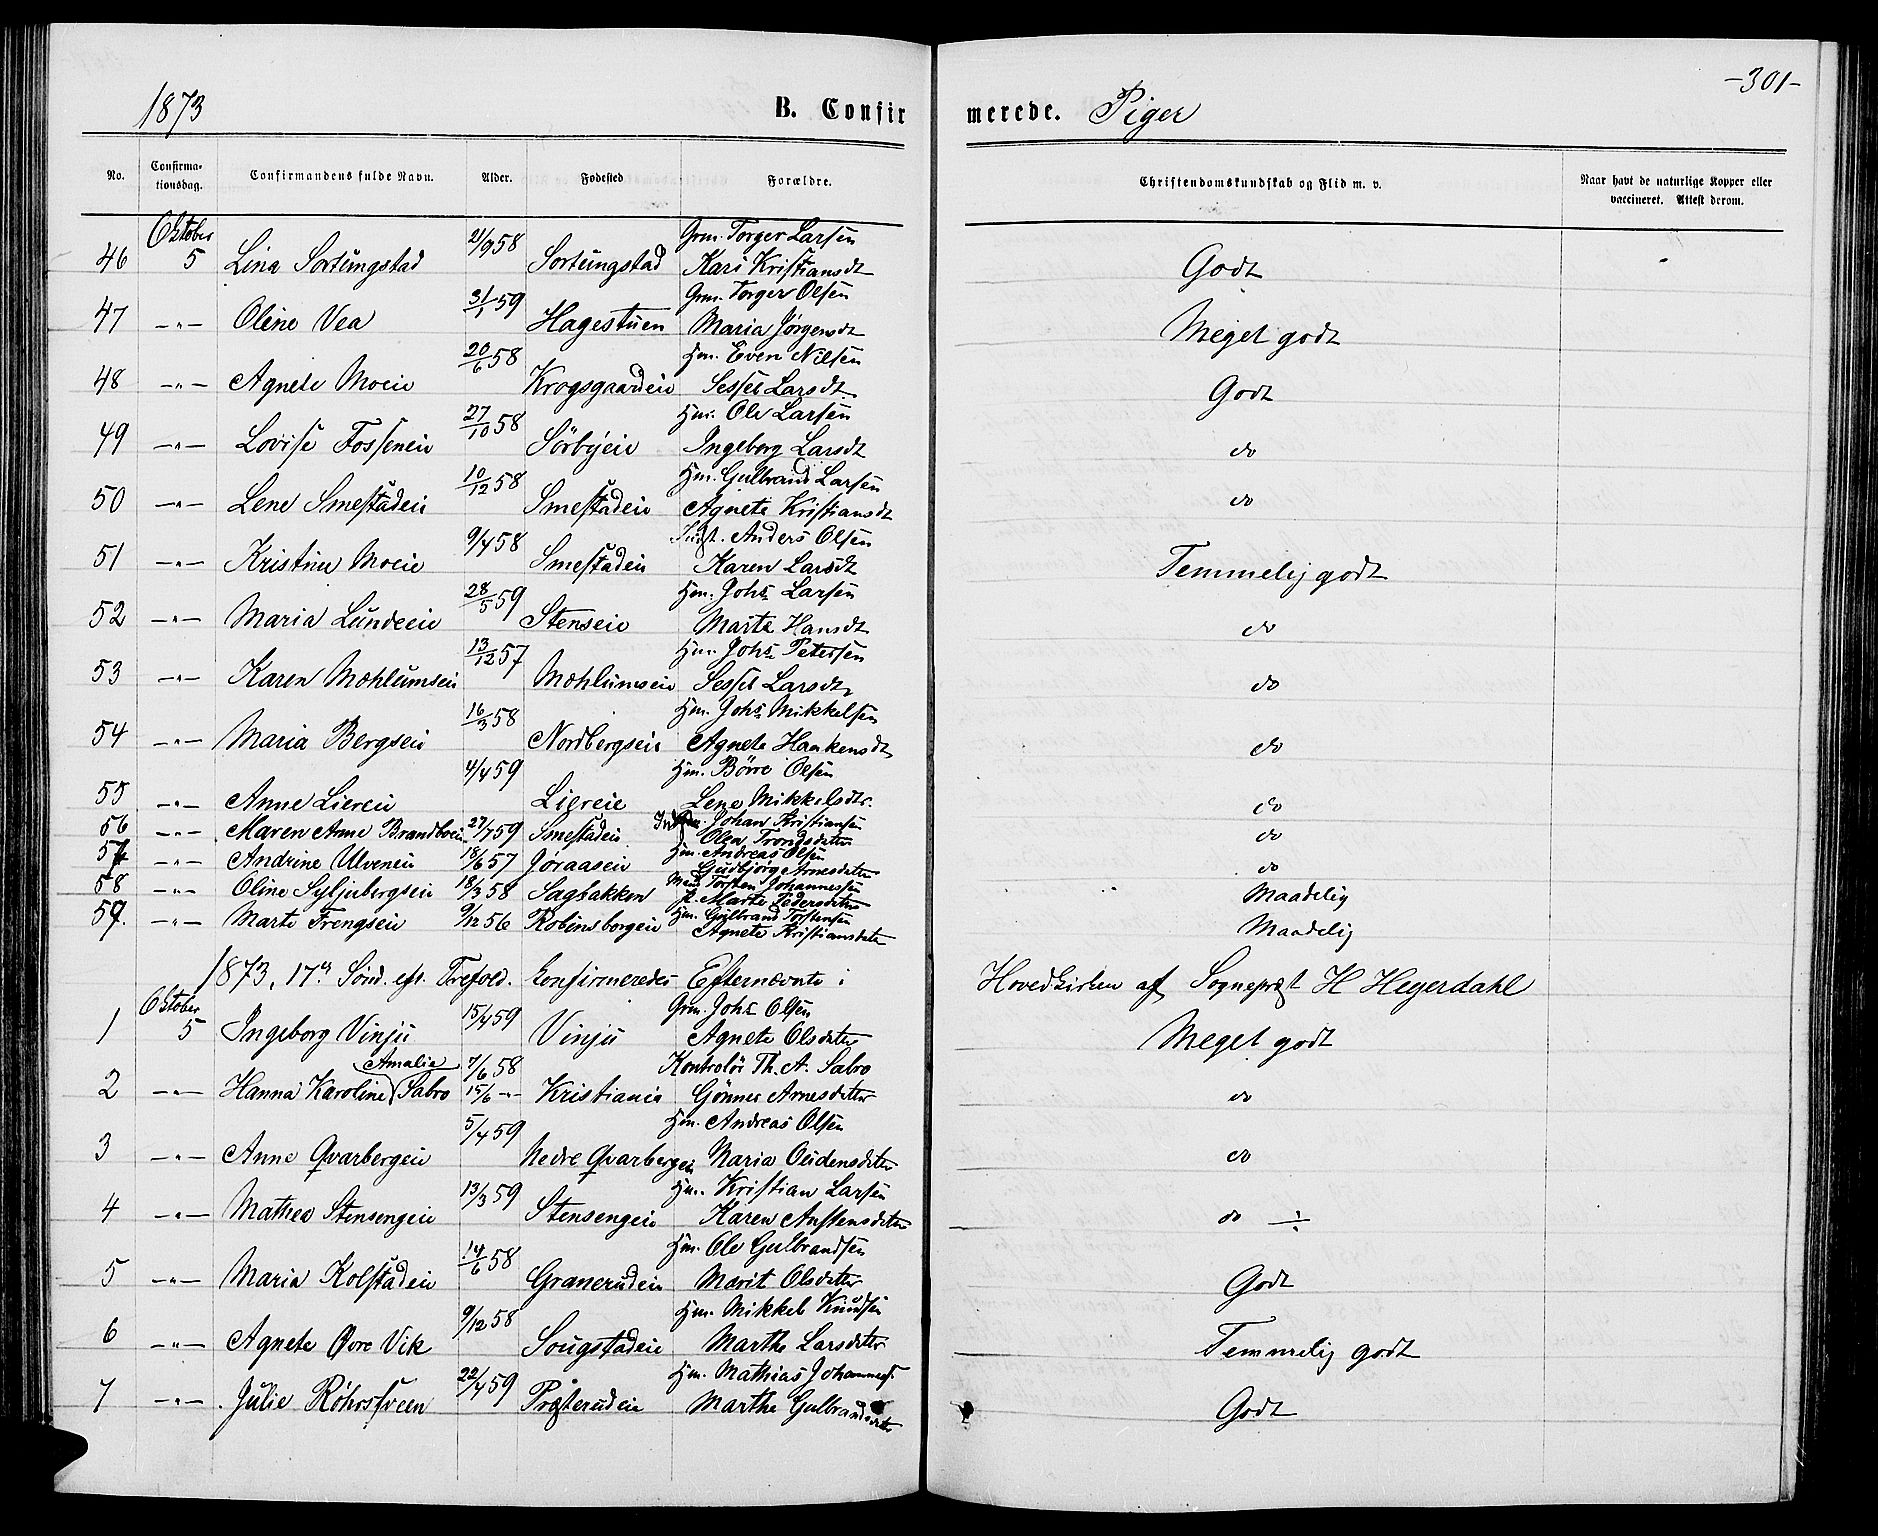 -301-
1873 B. Confirmerede. Piger
No. Confirmationsdag. Confirmandens fulde Navn. Alder. Fødested Forældre. Christendomskundskab og Flid m. v. Naar havt de naturlige Kopper eller vaccineret. Attest derom.
Oktober 21/9 58 Grm. Torger Larsen
46 5 Lina Sortungstad Sortungstad Kari Kristiansdt Godt
31/1 59 Grm. Torger Olsen
47 —"— Oline Vea Hagestuen Maria Jørgensdt Meget godt
20/6 58 Hm. Even Nilsen
48 —"— Agnete Moeie Krogsgaardeie Sessel Larsdt Godt
27/10 58 Hm. Ole Larsen
49 —"— Lovise Fosseneie Sörbyeie Ingeborg Larsdt do
10/12 58 Hm. Gulbrand Larsen
50 —"— Lene Smestadeie Smestadeie Agnete Kristiansdt do
9/4 58 Anders Olsen
51 —"— Kristine Moeie Smestadeie Karen Larsdt Temmelig godt
28/5 59 Hm. Johs Larsen
52 —"— Maria Lundeeie Stenseie Marte Hansdt do
13/12 57 Hm. Johs Petersen
53 —"— Karen Mæhlumseie Mæhlumseie Sessel Larsdt do
16/3 58 Hm. Johs Mikkelsen
54 —"— Maria Bergseie Nordbergseie Agnete Haakensdt do
4/4 59 Hm. Børre Olsen
55 —"— Anne Liereie Liereie Lene Mikkelsdtr. do
Johan Kristiansen
56 —"— Maren Anne Brandboeie 27/7 59 Smestadeie Olea Trondsdatter do
Hm. Andreas Olsen
57 —"— Andrine Ulveneie 18/6 57 Jøraaseie Gudbjørg Arnesdatter do
Torsten Johannessen
58 —"— Oline Syljubergseie 18/3 58 Sagbakken Marte Pedersdatter Maadelig
Hm. Gulbrand Torstensen
59. —"— Marte Frengseie 9/12 56 Robinsborgeie Agnete Kristiansdatter Maadelig
1873, 17de Sönd. eft. Trefold. konfirmeredes Efternævnte i Hovedkirken af Sognepræst H Heyerdahl
Oktober 15/4 59 Grm. Johs Olsen
1 5 Ingeborg Vinju Vinju Agnete Olsdatter Meget godt
Amalia 7/6 58 Kontrolör Th. A. Sabro
2 —"— Hanna Karoline Sabro 15/6 —"— Kristiania Gönner Arnesdatter do
5/4 59 Hm. Andreas Olsen
3 —"— Anne Qvarbergeie Nedre Qvarbergeie Maria Oudensdatter do
13/3 59 Hm. Kristian Larsen
4 —"— Mathea Stensengeie Stensengeie Karen Austensdatter do ÷
14/6 58 Hm. Ole Gulbrandsen
5 —"— Maria Kolstadeie Granerudeie Marit Olsdatter Godt
9/12 58 Hm. Mikkel Knudsen
6 —"— Agnete Øvre Vik Sougstadeie Marthe Larsdatter Temmelig godt
22/4 59 Hm. Mathias Johannes.
7 —"— Julie Röhrsveen Præsterudeie Marthe Gulbrandsdatter Godt